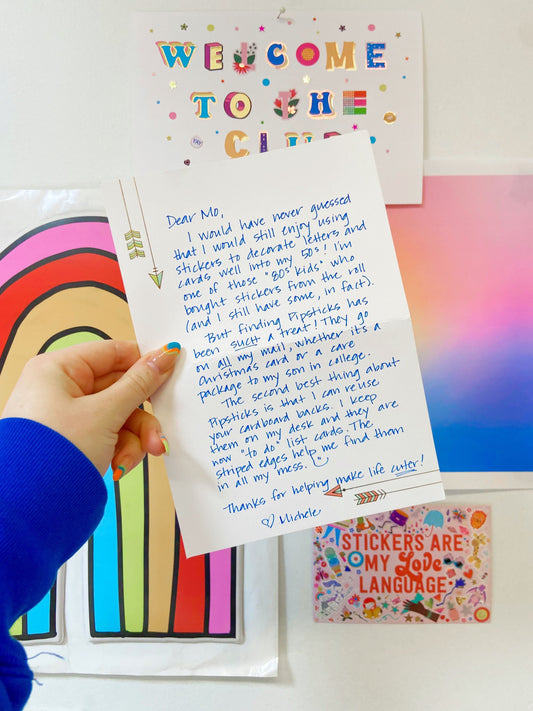 WELCOME
TO THE
CLUB
Dear Mo,
I would have never guessed
that I would still enjoy using
stickers to decorate letters and
cards well into my 50s! I'm
one of those "80s kids" who
bought stickers from the roll
(and I still have some, in fact).
But finding Pipsticks has
been such a treat! They go
on all my mail, whether it's a
Christmas card or a care
package to my son in college.
The second best thing about
Pipsticks is that I can reuse
your cardboard backs. I keep
them on my desk and they are
now "to do" list cards. The
striped edges help me find them
in all my mess.
Thanks for helping make life cuter!
♡ Michele
STICKERS ARE
MY Love
LANGUAGE